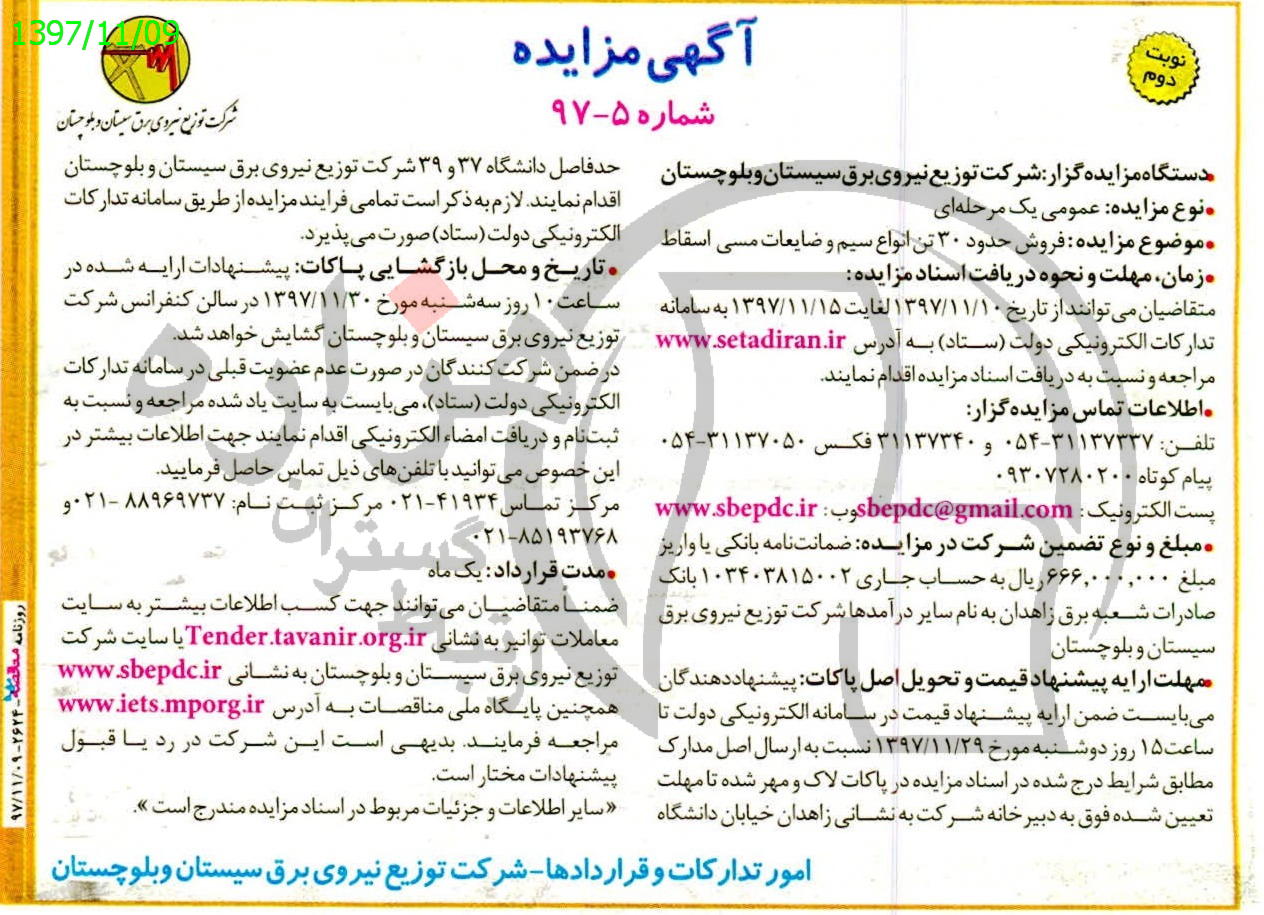 1397/11/09
نوبت
دوم
آگهی مزایده
شماره ۵-۹۷
شرکت توزیع نیروی برق سیستان و بلوچستان
•دستگاه مزایده گزار: شرکت توزیع نیروی برق سیستان وبلوچستان
•نوع مزایده: عمومی یک مرحله‌ای
•موضوع مزایده: فروش حدود ۳۰ تن انواع سیم و ضایعات مسی اسقاط
•زمان، مهلت و نحوه دریافت اسناد مزایده:
متقاضیان می‌توانند از تاریخ ۱۳۹۷/۱۱/۱۰ لغایت ۱۳۹۷/۱۱/۱۵ به سامانه
تدارکات الکترونیکی دولت (ستاد) به آدرس www.setadiran.ir
مراجعه و نسبت به دریافت اسناد مزایده اقدام نمایند.
•اطلاعات تماس مزایده‌گزار:
تلفن: ۳۱۱۳۷۳۳۷-۰۵۴ و ۳۱۱۳۷۳۴۰ فکس ۳۱۱۳۷۰۵۰-۰۵۴
پیام کوتاه ۰۹۳۰۷۲۸۰۲۰۰
پست الکترونیک: sbepdc@gmail.com وب: www.sbepdc.ir
•مبلغ و نوع تضمین شرکت در مزایده: ضمانت‌نامه بانکی یا واریز
مبلغ ۶۶۶,۰۰۰,۰۰۰ ریال به حساب جاری ۱۰۳۴۰۳۸۱۵۰۰۲ بانک
صادرات شعبه برق زاهدان به نام سایر درآمدها شرکت توزیع نیروی برق
سیستان و بلوچستان
•مهلت ارایه پیشنهاد قیمت و تحویل اصل پاکات: پیشنهاددهندگان
می‌بایست ضمن ارایه پیشنهاد قیمت در سامانه الکترونیکی دولت تا
ساعت ۱۵ روز دوشنبه مورخ ۱۳۹۷/۱۱/۲۹ نسبت به ارسال اصل مدارک
مطابق شرایط درج شده در اسناد مزایده در پاکات لاک و مهر شده تا مهلت
تعیین شده فوق به دبیرخانه شرکت به نشانی زاهدان خیابان دانشگاه
حدفاصل دانشگاه ۳۷ و ۳۹ شرکت توزیع نیروی برق سیستان و بلوچستان
اقدام نمایند. لازم به ذکر است تمامی فرایند مزایده از طریق سامانه تدارکات
الکترونیکی دولت (ستاد) صورت می‌پذیرد.
• تاریخ و محل بازگشایی پاکات: پیشنهادات ارایه شده در
ساعت ۱۰ روز سه‌شنبه مورخ ۱۳۹۷/۱۱/۳۰ در سالن کنفرانس شرکت
توزیع نیروی برق سیستان و بلوچستان گشایش خواهد شد.
در ضمن شرکت کنندگان در صورت عدم عضویت قبلی در سامانه تدارکات
الکترونیکی دولت (ستاد)، می‌بایست به سایت یاد شده مراجعه و نسبت به
ثبت‌نام و دریافت امضاء الکترونیکی اقدام نمایند جهت اطلاعات بیشتر در
این خصوص می‌توانید با تلفن‌های ذیل تماس حاصل فرمایید.
مرکز تماس ۴۱۹۳۴-۰۲۱ مرکز ثبت نام: ۸۸۹۶۹۷۳۷ -۰۲۱ و
۸۵۱۹۳۷۶۸-۰۲۱
•مدت قرارداد: یک ماه
ضمناً متقاضیان می‌توانند جهت کسب اطلاعات بیشتر به سایت
معاملات توانیر به نشانی Tender.tavanir.org.ir یا سایت شرکت
توزیع نیروی برق سیستان و بلوچستان به نشانی www.sbepdc.ir
همچنین پایگاه ملی مناقصات به آدرس www.iets.mporg.ir
مراجعه فرمایند. بدیهی است این شرکت در رد یا قبول
پیشنهادات مختار است.
«سایر اطلاعات و جزئیات مربوط در اسناد مزایده مندرج است».
امور تدارکات و قراردادها-شرکت توزیع نیروی برق سیستان وبلوچستان
روزنامه مناقصه - ۲۶۴۴ - ۹۷/۱۱/۰۹
هزاره